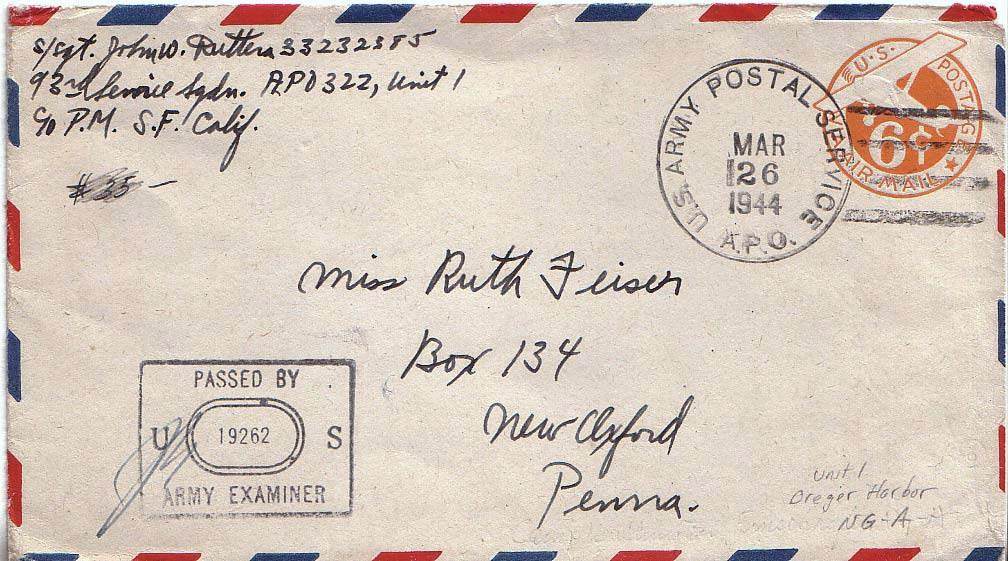 S/Sgt. John W. Ruttera 33232385
93rd Service Sqdn. APO 322, Unit 1
c/o P.M. S.F. Calif.
#35 -
U.S. ARMY POSTAL SERVICE
MAR
26
1944
A.P.O.
U.S. POSTAGE
6¢
AIR MAIL
Miss Ruth Feiser
Box 134
New Oxford
Penna.
PASSED BY
U 19262 S
ARMY EXAMINER
Unit 1
Oreger Harbor
NG-A